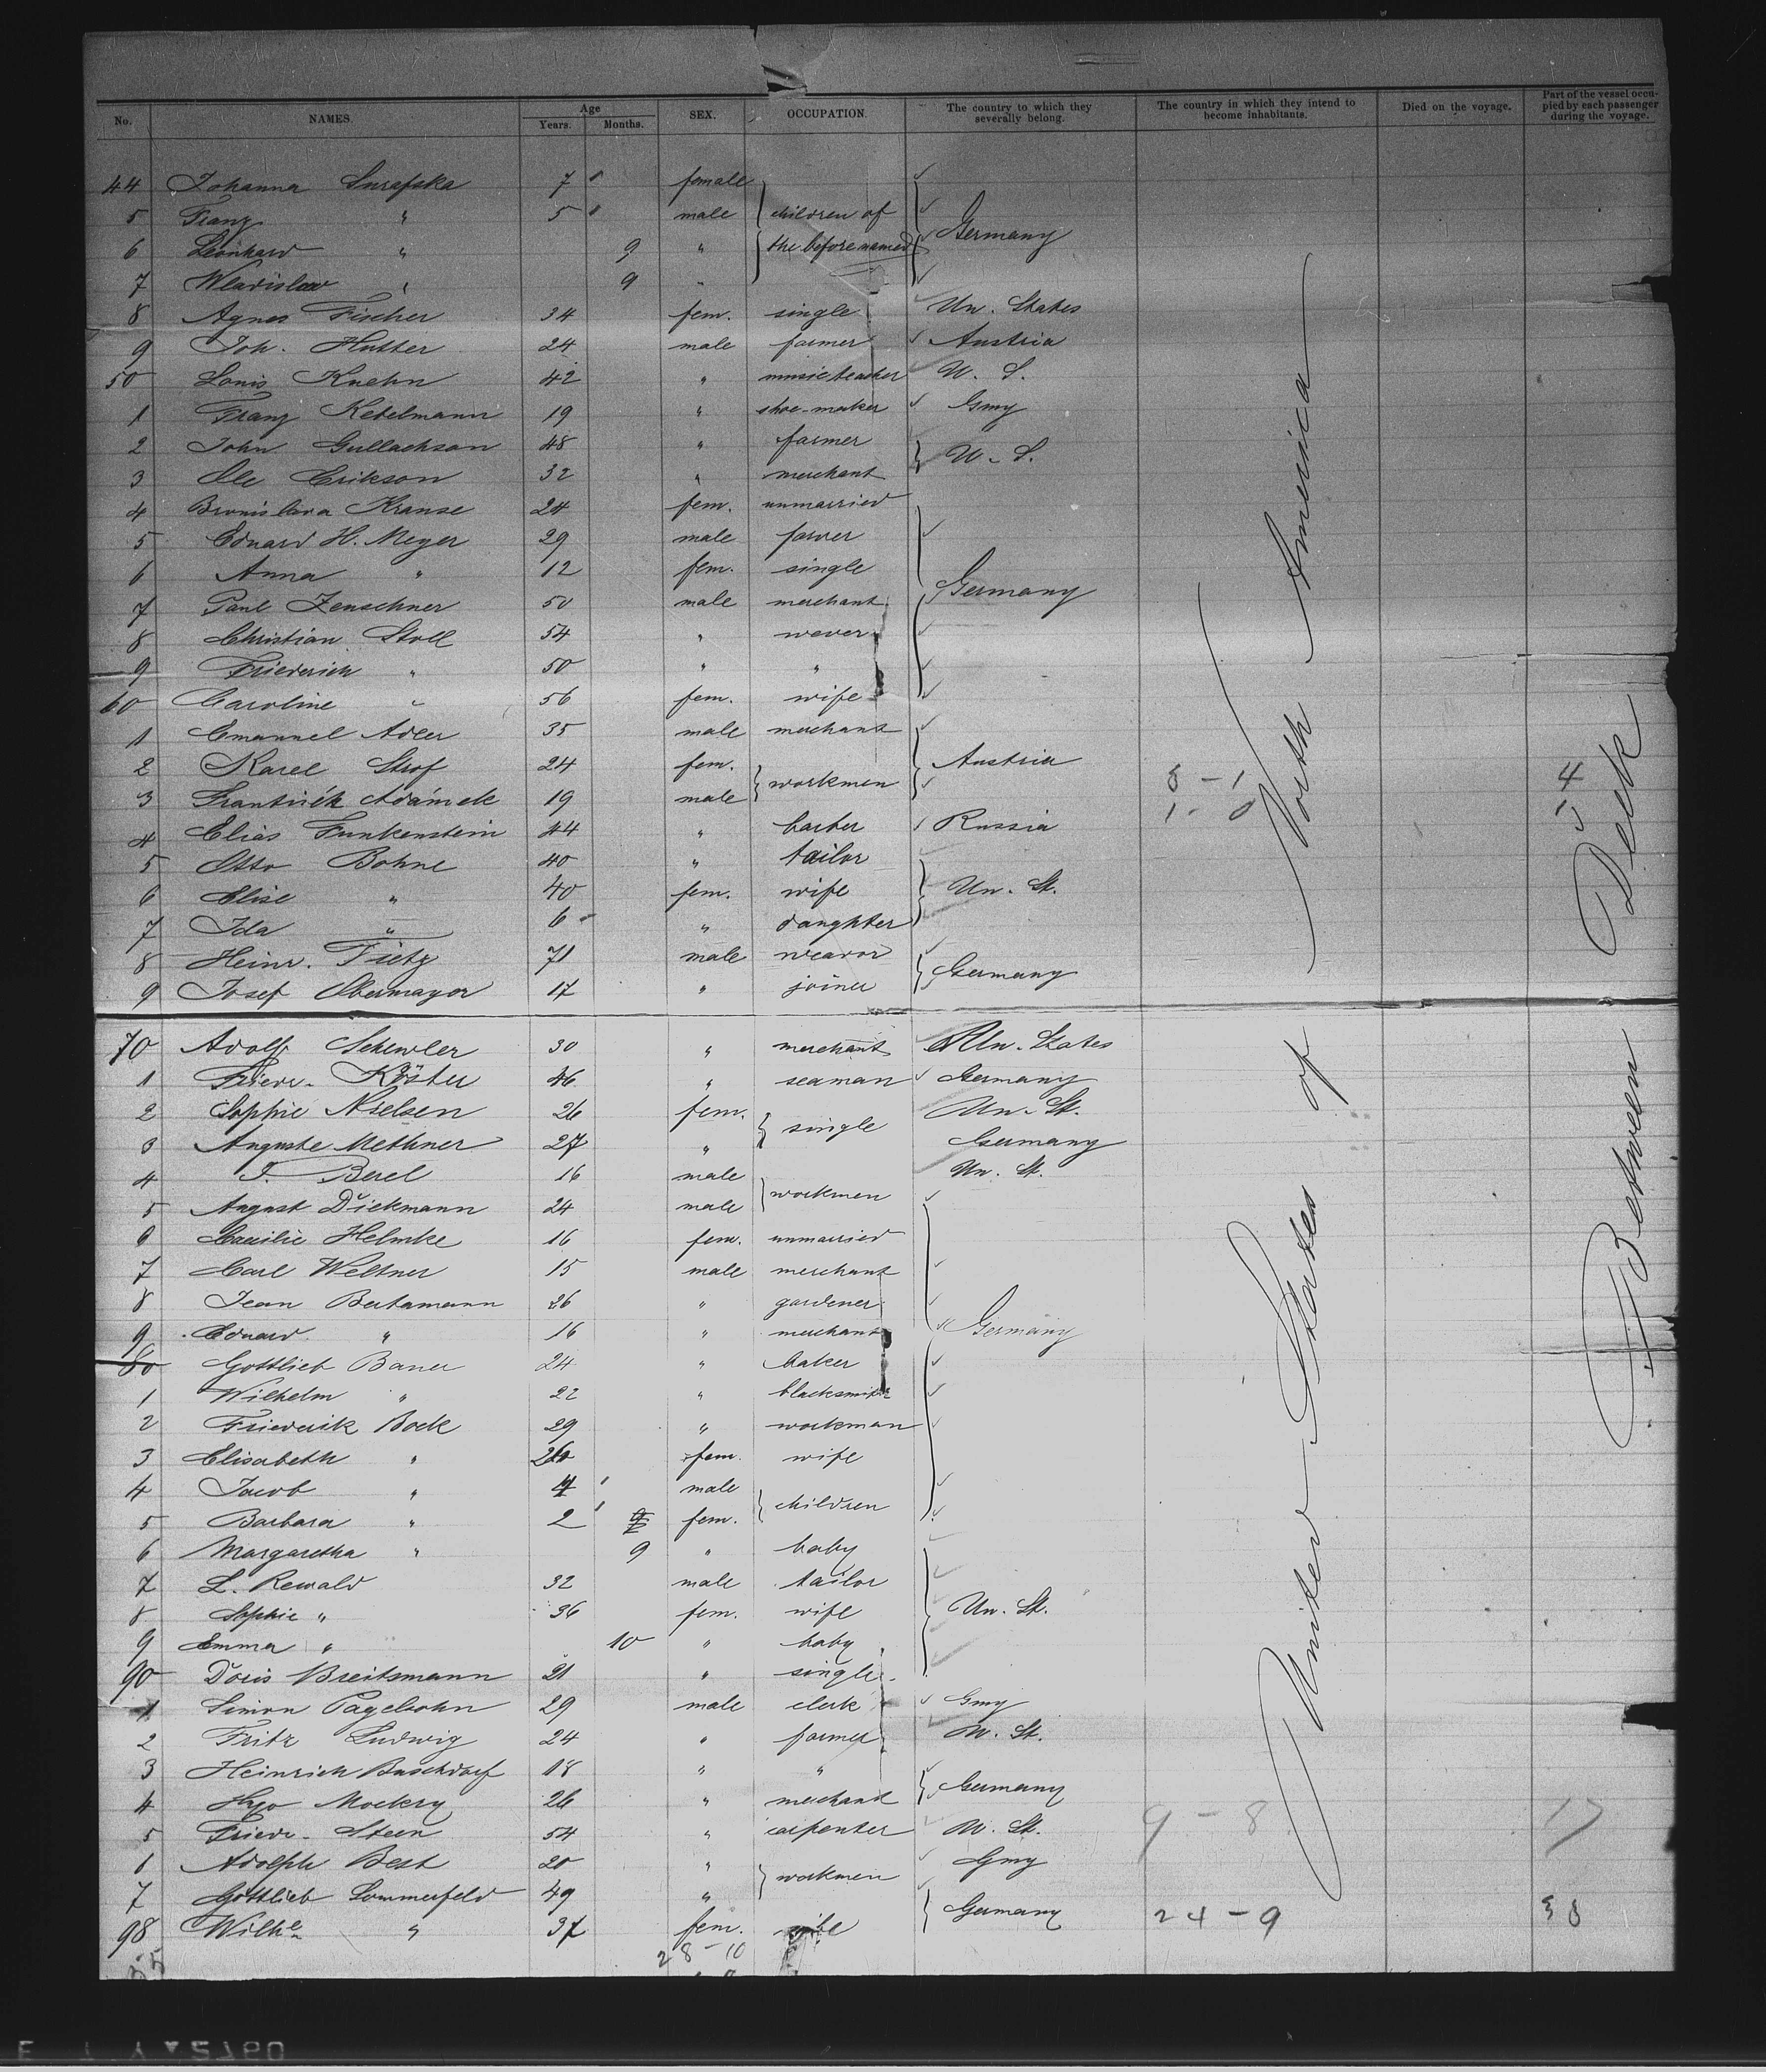 No. NAMES. Age Years. Months. SEX. OCCUPATION. The country to which they severally belong. The country in which they intend to become inhabitants. Died on the voyage. Part of the vessel occupied by each passenger during the voyage.
44 Johanna 7 female
5 Franz " 5 male children of Germany
6 Leonhard " 9 " the before named
7 Wladislaw " 9 "
8 Agnes Fischer 34 fem. single Un. States
9 Joh. Hutter 24 male farmer Austria
50 Louis Kuehn 42 " music teacher U. S.
1 Franz Ketelmann 19 " shoe-maker Gmy
2 John Gullachson 48 " farmer U. S.
3 Ole Erikson 32 " merchant
4 Bronislava Krause 24 fem. unmarried
5 Eduard H. Meyer 29 male farmer
6 Anna " 12 fem. single Germany
7 Paul Zenschner 50 male merchant
8 Christian Stoll 54 " wever
9 Friederich " 50 " "
60 Caroline " 56 fem. wife
1 Emanuel Adler 35 male merchant
2 Karel Strof 24 fem. workmen Austria
3 Frantisék Adámek 19 male
4 Elias Funkenstein 44 " barber Russia
5 Otto Bohne 40 " tailor
6 Elise " 40 fem. wife Un. St.
7 Ida " 6 " daughter
8 Heinr. Tietz 71 male weavor
9 Josef Obermayor 17 " joiner Germany
70 Adolf 30 " merchant Un. States
1 Friedr. Köster 46 " seaman Germany
2 Sophie Nielsen 26 fem. single Un. St.
3 Auguste Methner 27 " Germany
4 Berel 16 male workmen Un. St.
5 August Diekmann 24 male
6 Caecilie Helmke 16 fem. unmarried
7 Carl Weltner 15 male merchant
8 Jean Bertamann 26 " gardener
9 Eduard " 16 " merchant Germany
80 Gottlieb Bauer 24 " baker
1 Wilhelm " 22 " blacksmith
2 Friederik Bock 29 " workman
3 Elisabeth " 26 fem. wife
4 Jacob " 4 male children
5 Barbara " 2 fem.
6 Margaretha " 9 " baby
7 L. Rewald 32 male tailor
8 Sophie " 36 fem. wife Un. St.
9 Emma " 10 " baby
90 Doris Breitsmann 21 " single
1 Simon Pagelsohn 29 male clerk Gmy
2 Fritz Ludwig 24 " farmer U. St.
3 Heinrich Buschdorf 18 " " Germany
4 Hugo Mockry 26 " merchant
5 Friedr. Steen 54 " carpenter U. St.
6 Adolph Best 20 " workmen Gmy
7 Gottlieb Sommerfeld 49 "
98 Wilhe " 37 fem. wife Germany
United States of North America
Between Deck
8 - 1
4
1 - 0
9 - 8
17
24 - 9
38
28 - 10